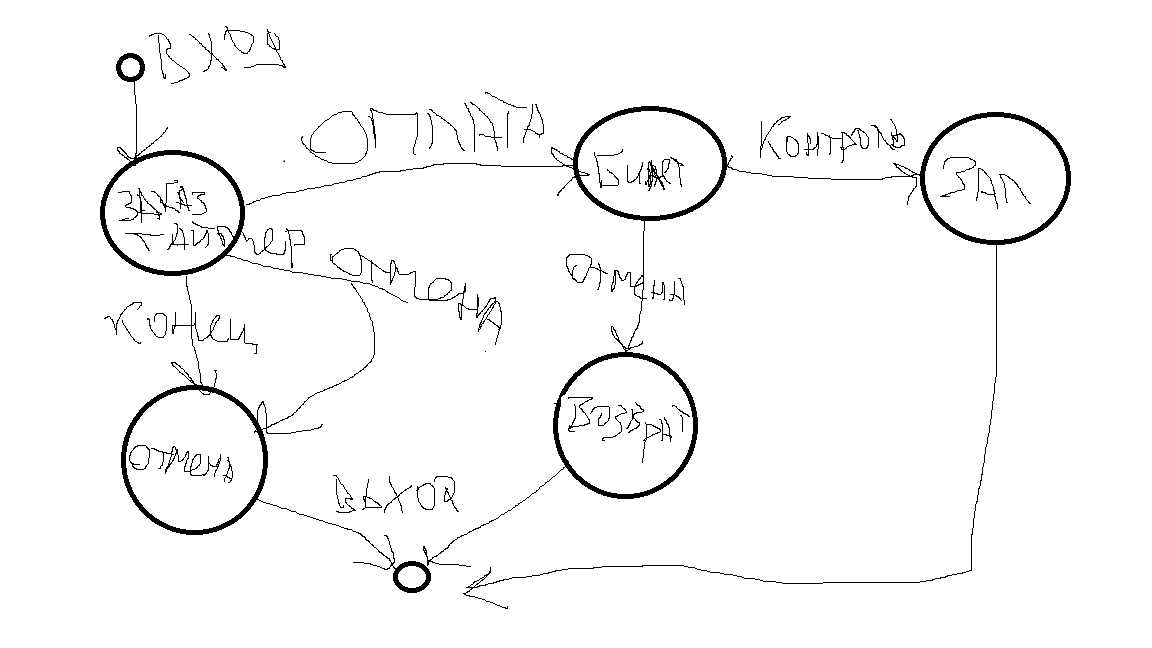 ВХОД
ОПЛАТА
КОНТРОЛЬ
ЗАКАЗ
ТАЙМЕР
БИЛЕТ
ЗАЛ
ОТМЕНА
ОТМЕНА
КОНЕЦ
ВОЗВРАТ
ОТМЕНА
ВЫХОД